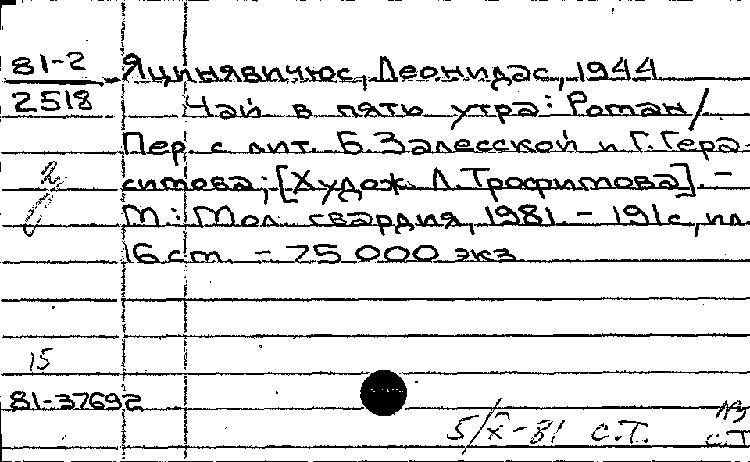 81-2
2518
Яцинявичюс, Леонидас, 1944
Чай в пять утра: Роман /
Пер. с лит. Б. Залесской и Г. Гера-
симова; [Худож. Л. Трофимова]. -
М.: Мол. гвардия, 1981. - 191 с., ил.
16 см. - 75 000 экз
15
81-37692
5/X-81 С.Т.
С.Т